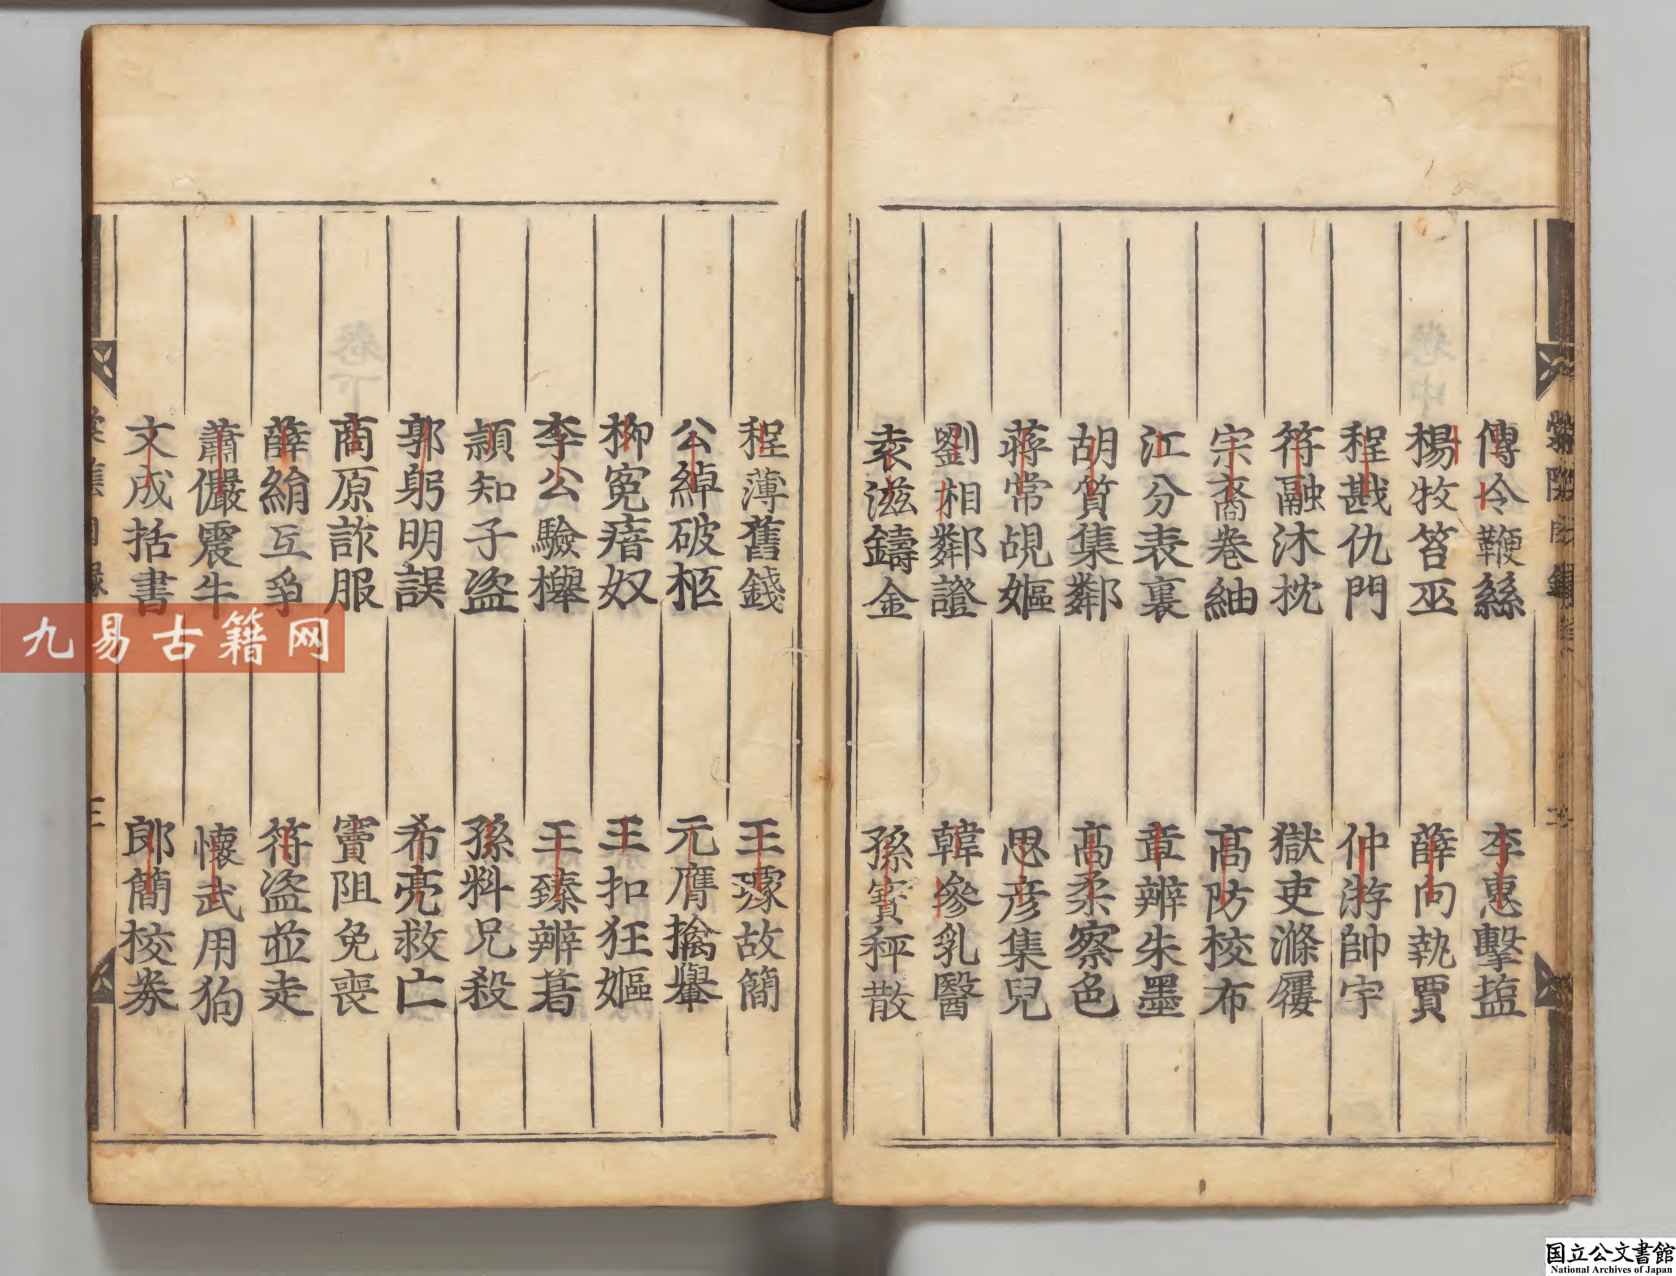 傅令鞭絲 李惠擊塩
楊牧笞巫 薛向執賈
程戡仇門 仲游帥宇
符融沐枕 獄吏滌㞞
宗裔卷紬 高防校布
江分表裏 章辨朱墨
胡質集鄰 高柔察色
蔣常覘嫗 思彦集兒
劉相鄰證 韓參乳醫
袁滋鑄金 孫寳秤散
程薄舊錢 王璩故簡
公綽破柩 元膺擒轝
柳冤瘖奴 王扣狂嫗
李公驗櫸 王臻辨葛
頴知子盜 孫料兄殺
郭躬明誤 希亮救亡
商原詐服 竇阻免喪
薛絹互爭 符盜並走
蕭儼震牛 懷武用狗
文成括書 郎簡校券
三
九易古籍网
国立公文書館
National Archives of Japan